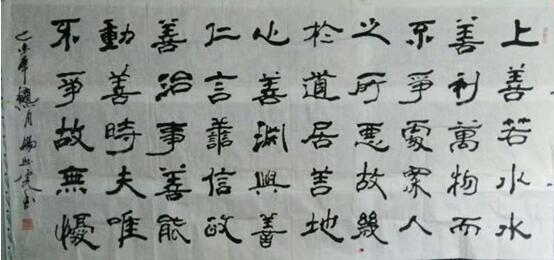 上善若水水
善利萬物而
不爭處衆人
之所惡故幾
於道居善地
心善淵與善
仁言善信政
善治事善能
動善時夫唯
不爭故無懮
乙未年